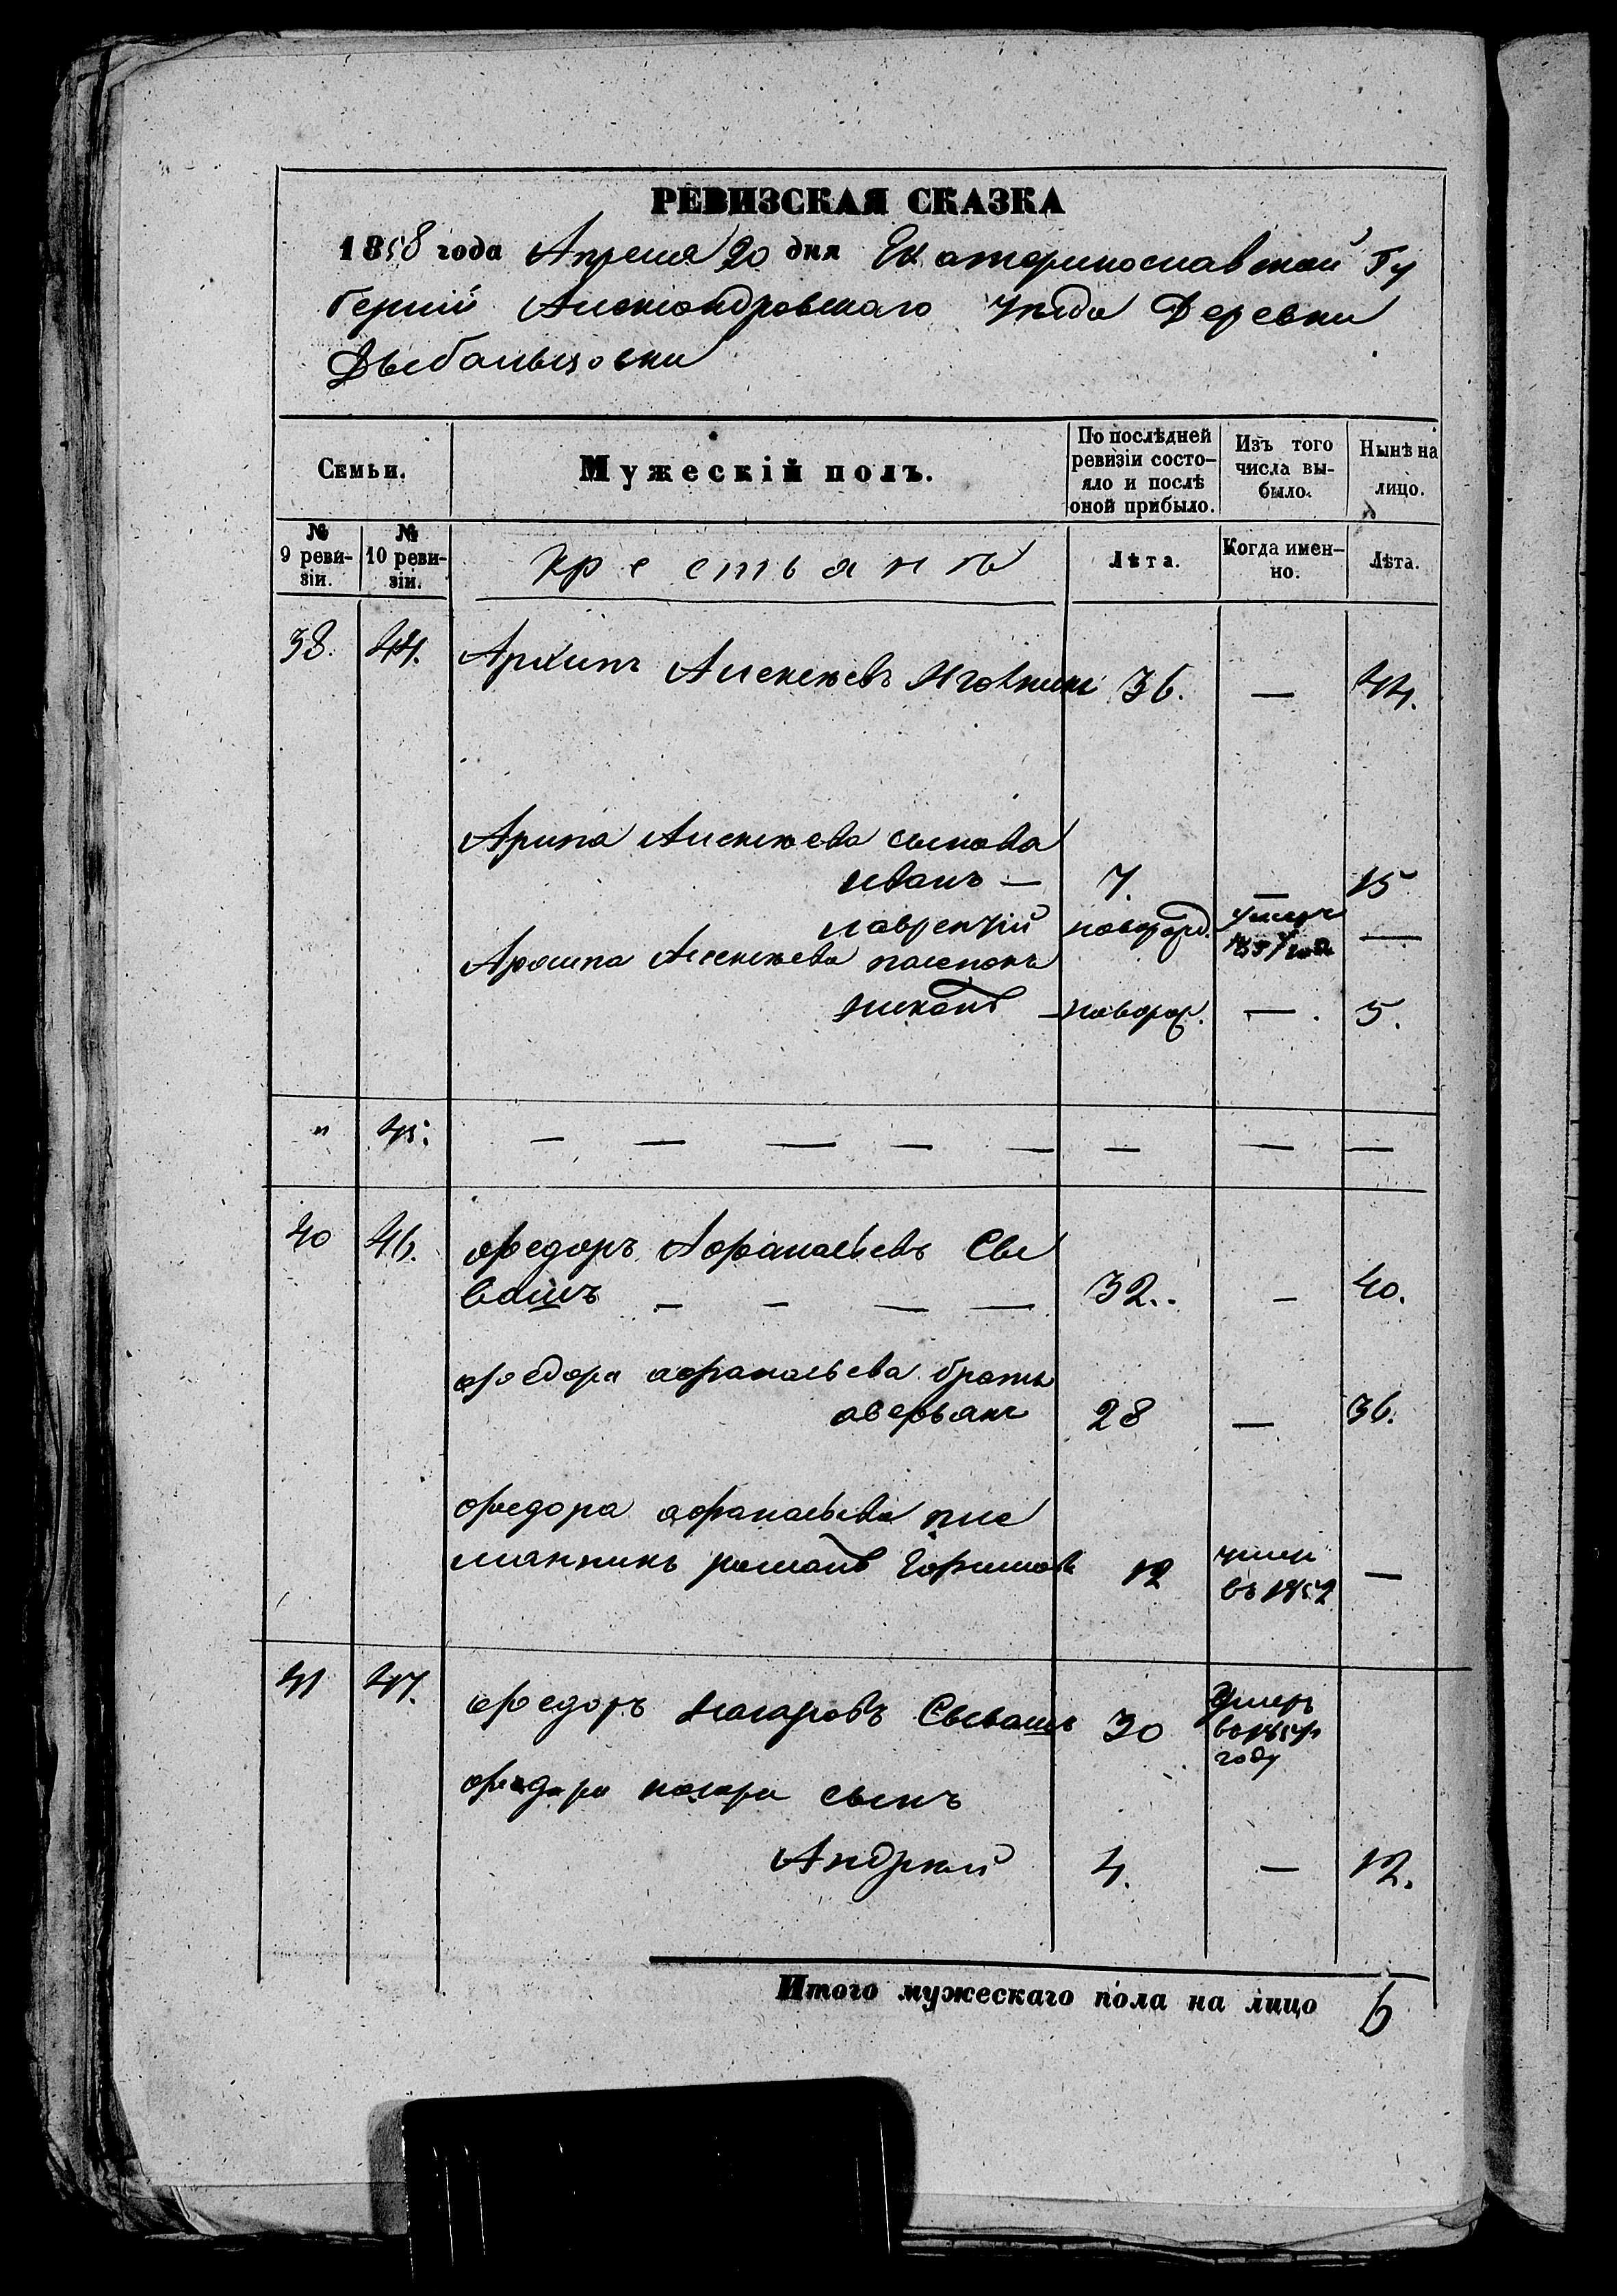 РЕВИЗСКАЯ СКАЗКА
1858 года Апреля 20 дня Екатеринославской Гу
берніи Александровскаго Уезда Деревни
Семьи.
Мужескій полъ.
По послѣдней ревизіи состо-
яло и послѣ оной прибыло.
Изъ того числа вы-
было.
Нынѣ на лицо.
№ 9 реви-
зіи.
№ 10 реви-
зіи.
крестьянъ
Лѣта.
Когда имен-
но.
Лѣта.
38. 44. Архипъ Алексѣевъ 36. — 44.
Архипа Алексѣева сынова
иванъ — 7. — 15
лаврентій новорожд. умеръ —
Архипа Алексѣева
новорож. — 5.
" 45. — — — — — — — —
40 46. Федоръ Афанасьевъ Сы
вашъ — — — — 32. — 40.
Федора афанасьева братъ
аверьянъ 28 — 36.
Федора афанасьева пле
мянникъ романъ 12 умеръ въ 1852 —
41 47. Федоръ Макаровъ Сывашъ 30 Умеръ году
Федора макара сынъ
Андрей 4. — 12.
Итого мужескаго пола на лицо 6